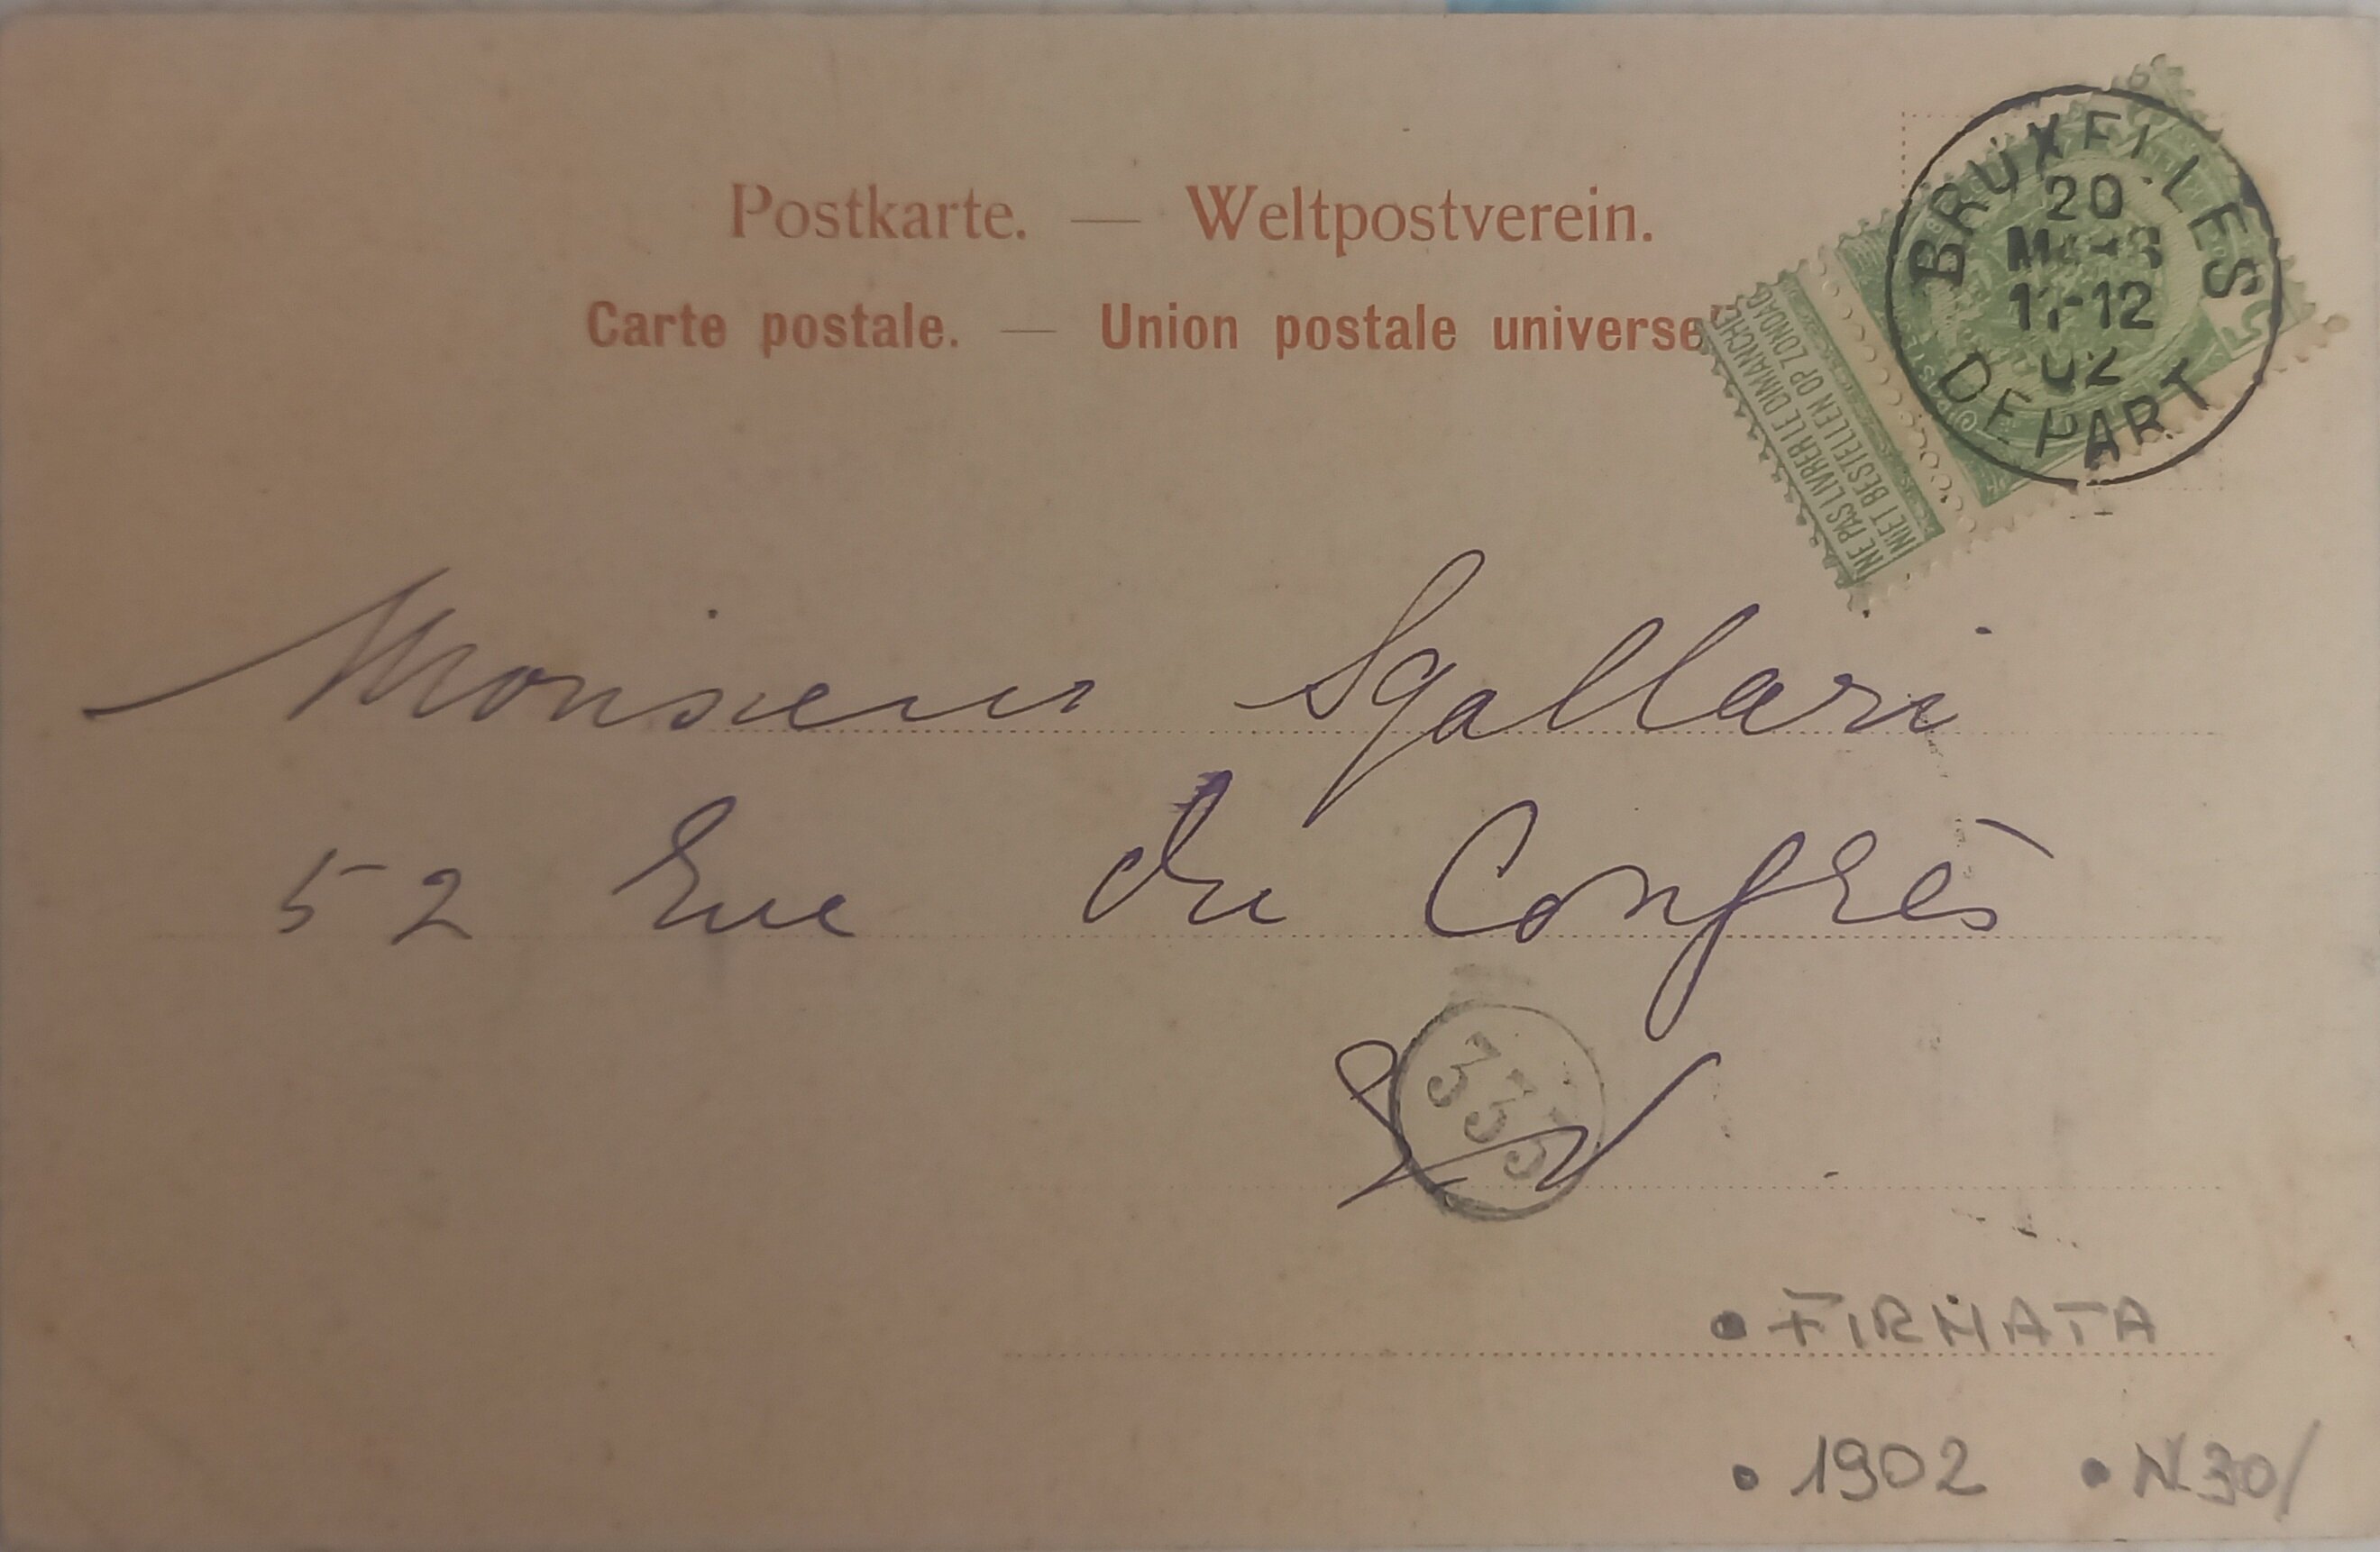 Postkarte. — Weltpostverein.
Carte postale. — Union postale universe
BRUXELLES
20
MARS
11-12
02
DEPART
5
NE PAS LIVRER LE DIMANCHE
NIET BESTELLEN OP ZONDAG
Monsieur Sgallari
52 Rue du Congrès
335
E/V
• FIRMATA
• 1902 • N30/